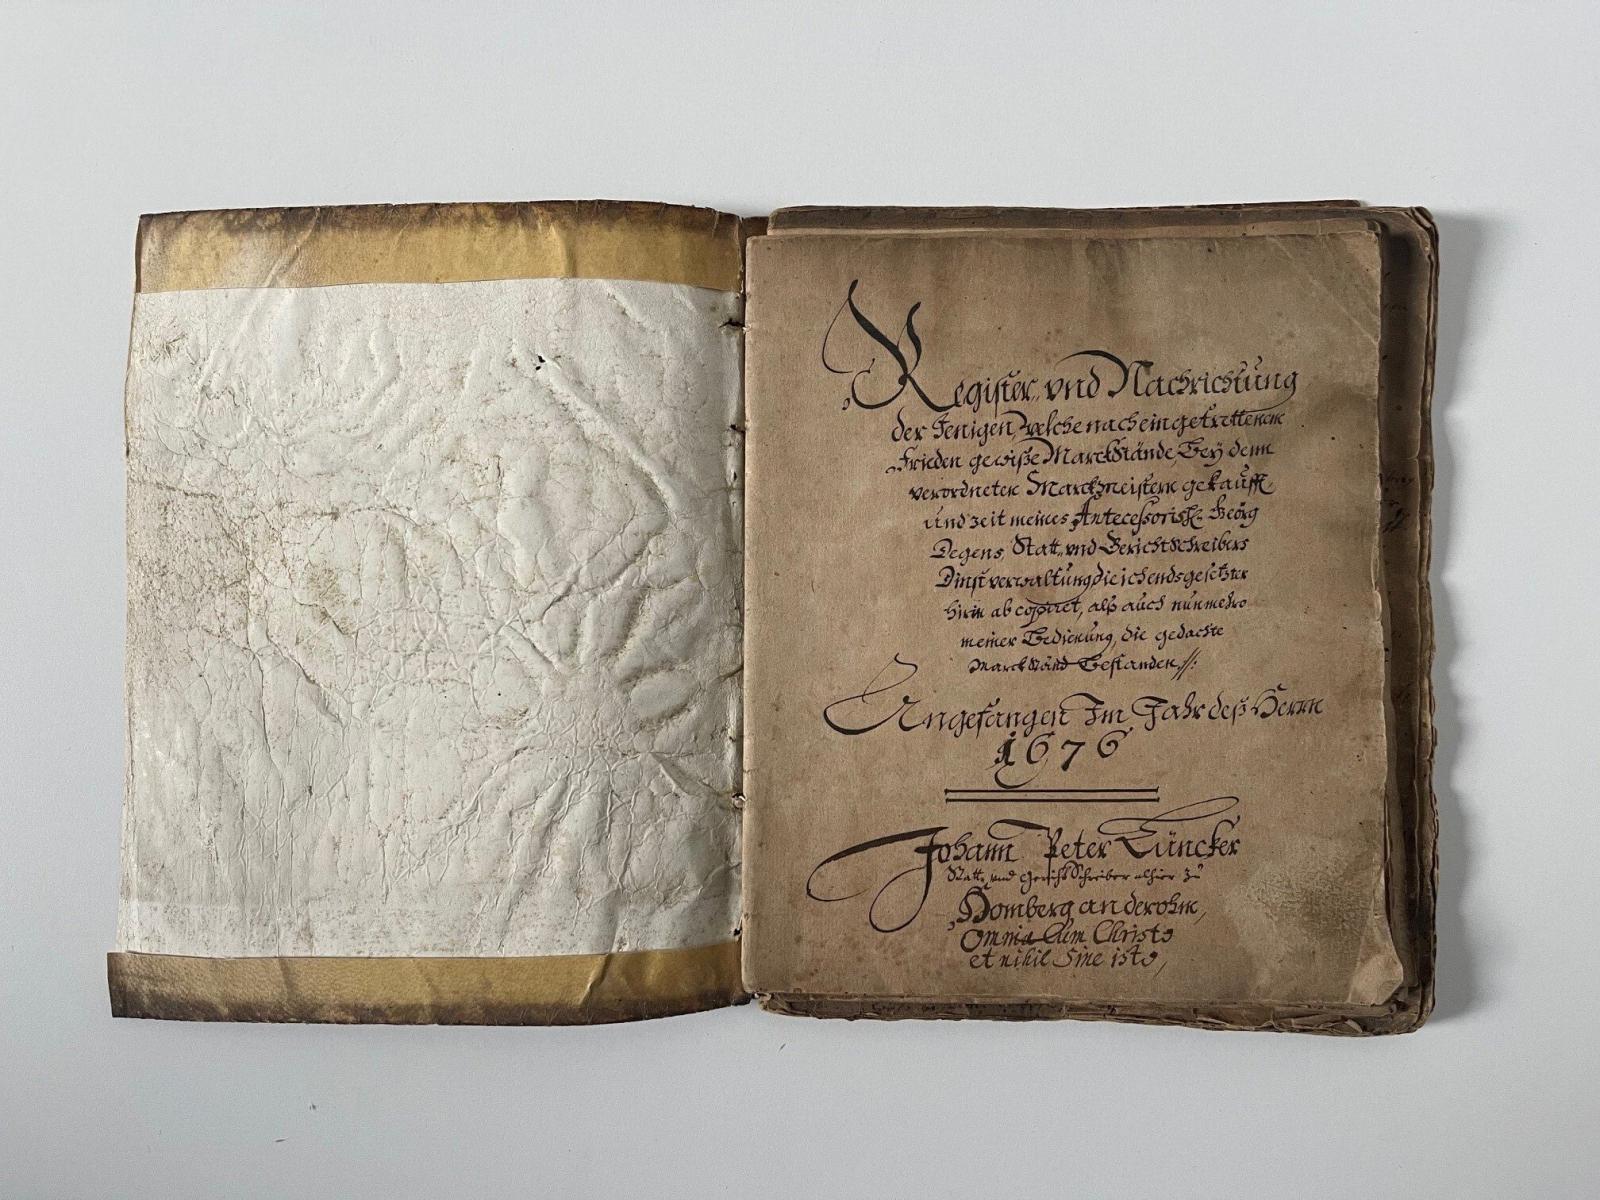 Register, vnd Nachrichtung
der Jenigen, welche nach eingetrettenem
Frieden gewiße Marckstände, Beÿ denn
verordneten Marckmeistern gekaufft,
und zeit meines Antecessoris H. Georg
Degens, Statt, vnd Gerichtschreibers
Dinstverwaltung die ich endsgesetzter
hirin ab copiret, alß auch nunmehro
meiner Bedienung, die gedachte
Marckständ Bestanden //:
Angefangen Im Jahr deß Herrn
1676
Johann Peter Lüncker
Statt, vnd Gericht Schreiber alhier zu
Homberg an der ohm,
Omnia Cum Christo
et nihil Sine isto,